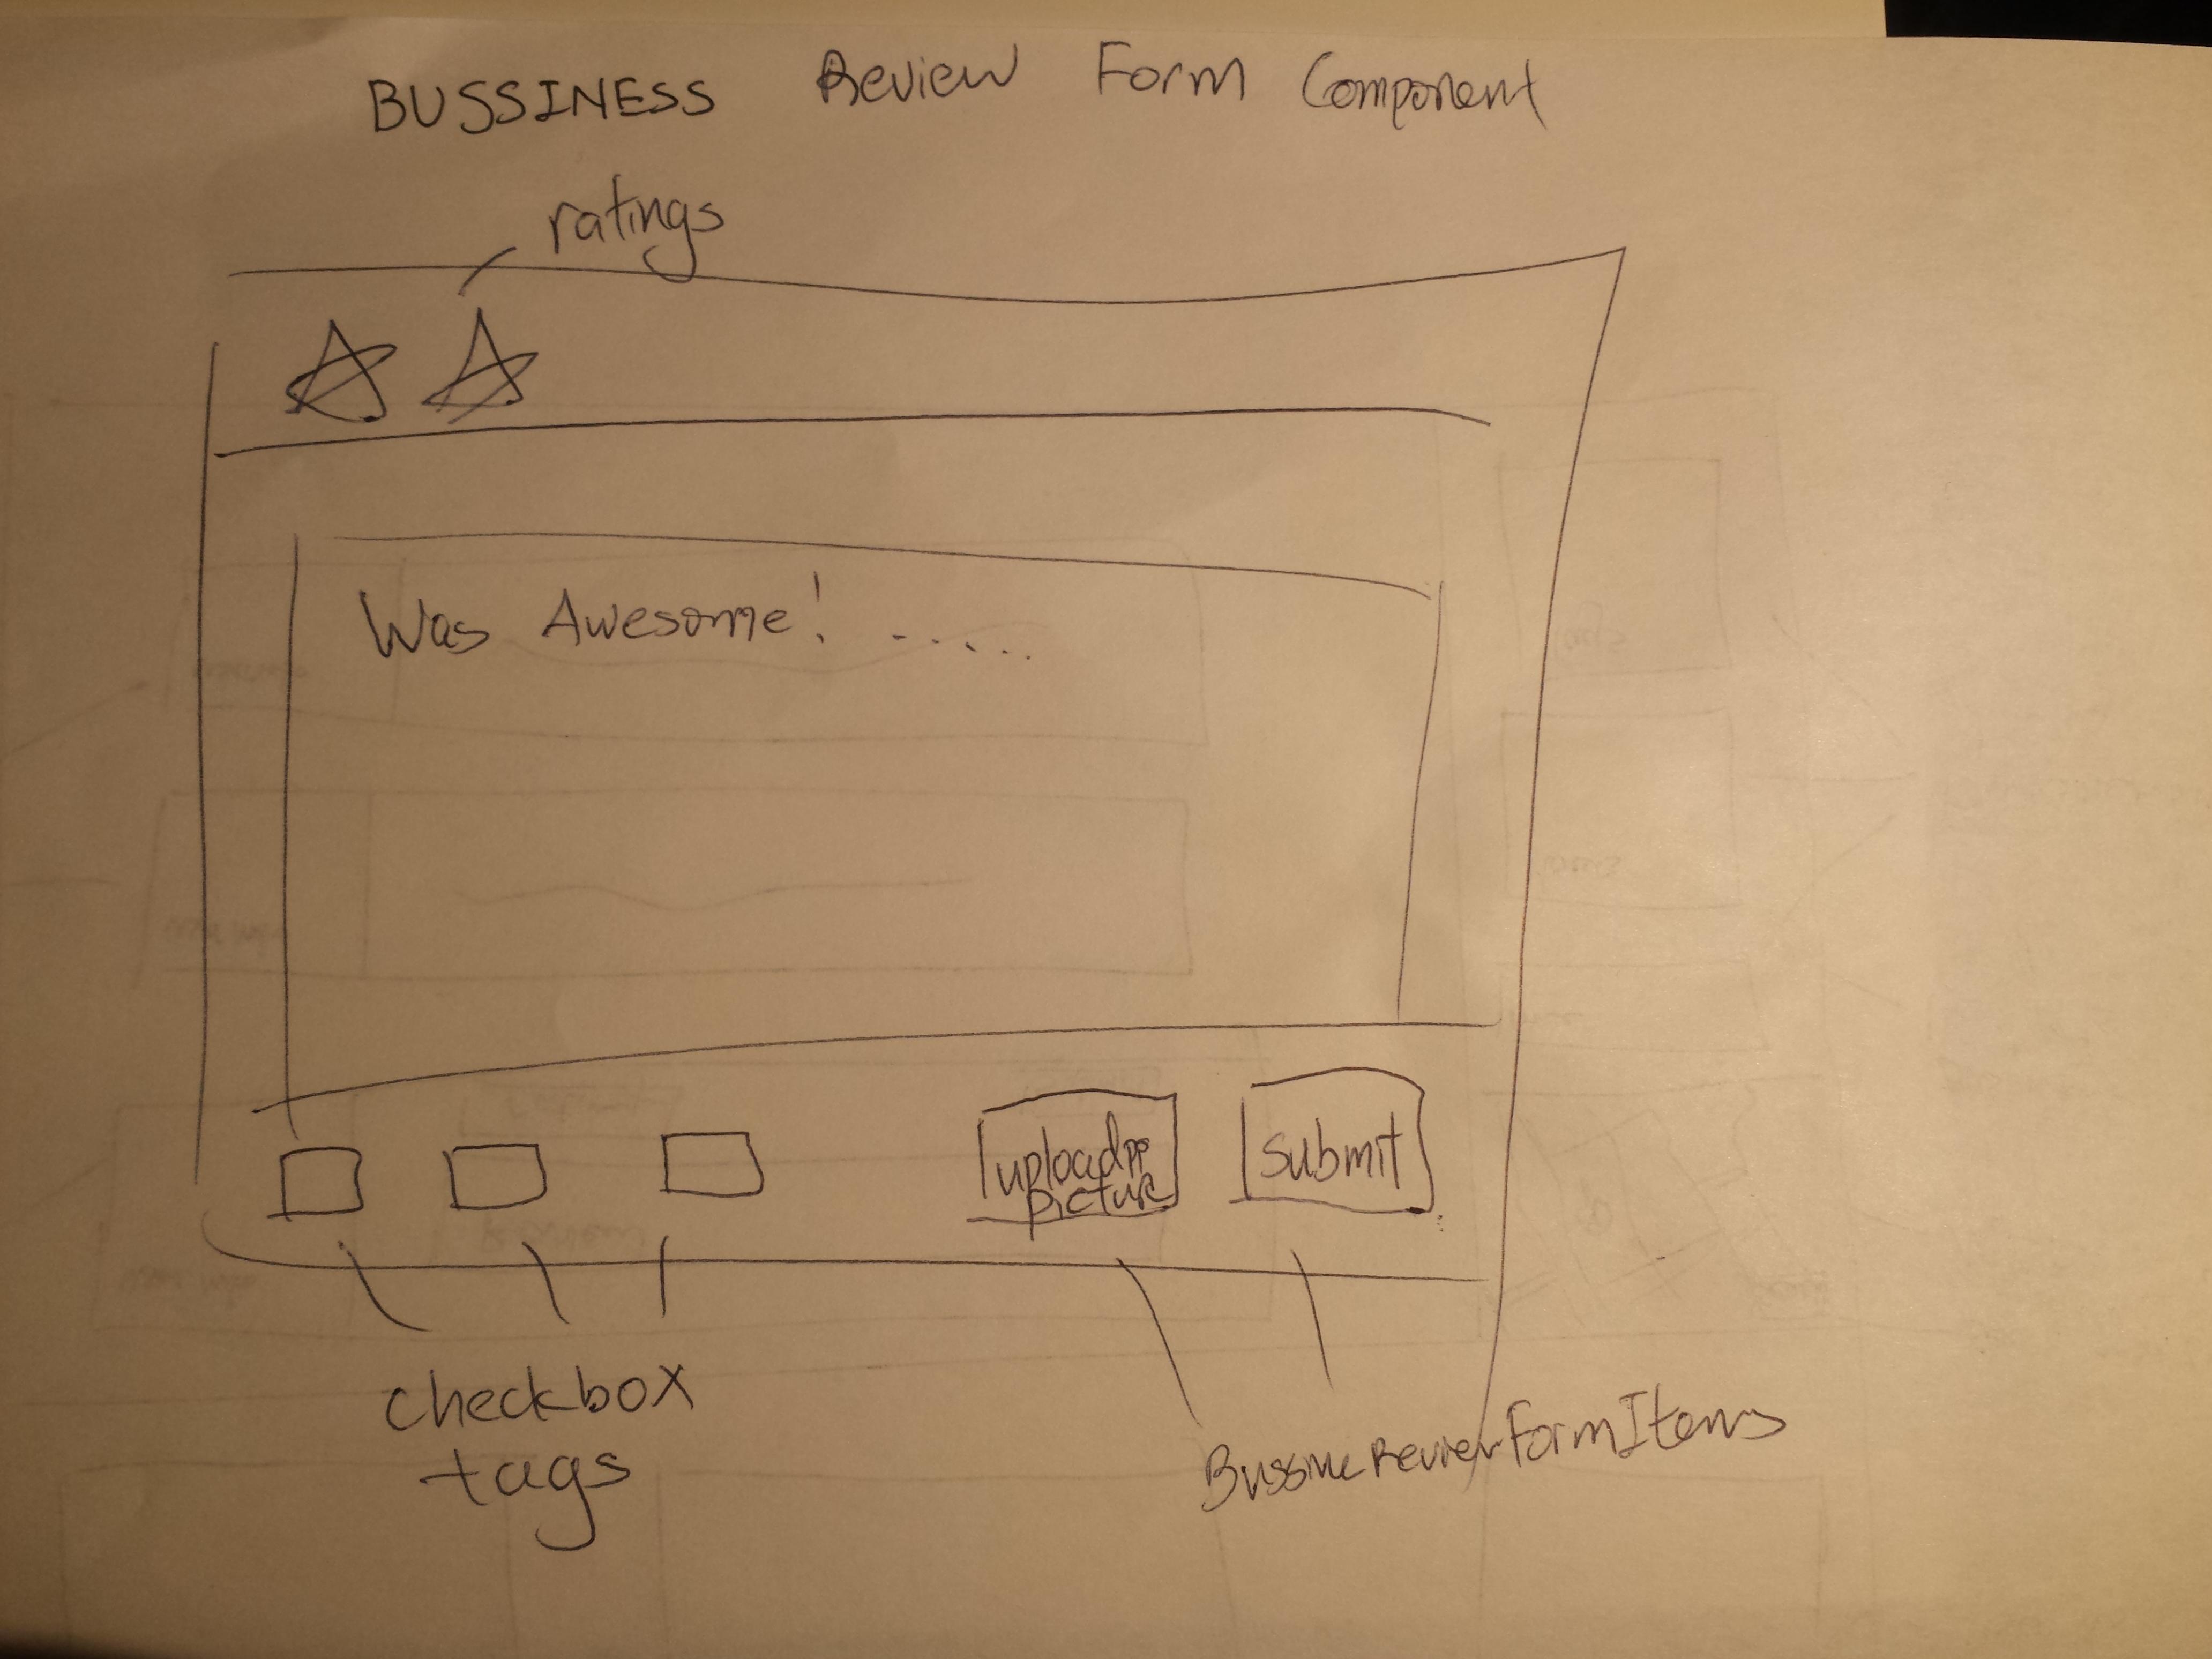 BUSSINESS Review Form Component
ratings
Was Awesome! .....
upload
picture
submit
checkbox
tags
BussineReviewFormItems